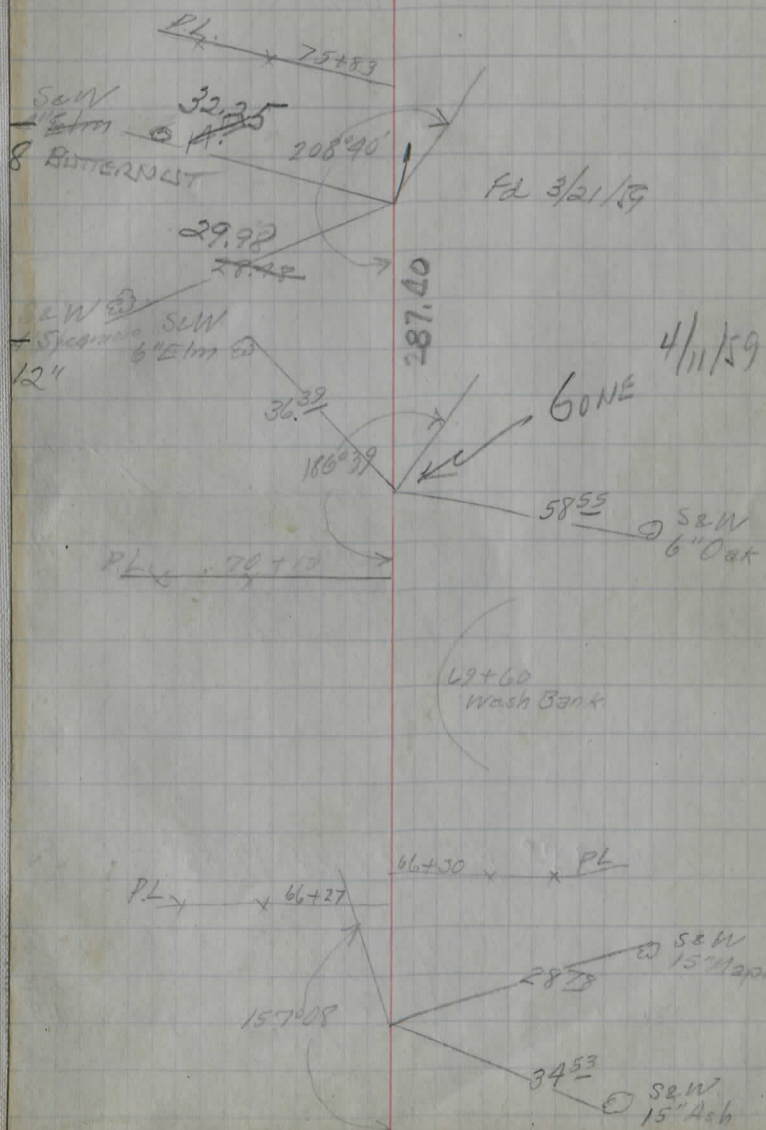 P.L.
75+83
S&W
4" Elm
8 BUTTERNUT
32.35
208°40'
Fd 3/21/59
29.98
28.48
S&W
Sycamore
12"
S&W
6" Elm
287.40
4/11/59
GONE
36.39
186°39
58 55
S&W
6" Oak
P.L.
69+60
Wash Bank
66+30 PL
P.L. 66+27
28 78
S&W
15" Map
157°08
34 53
S&W
15" Ash